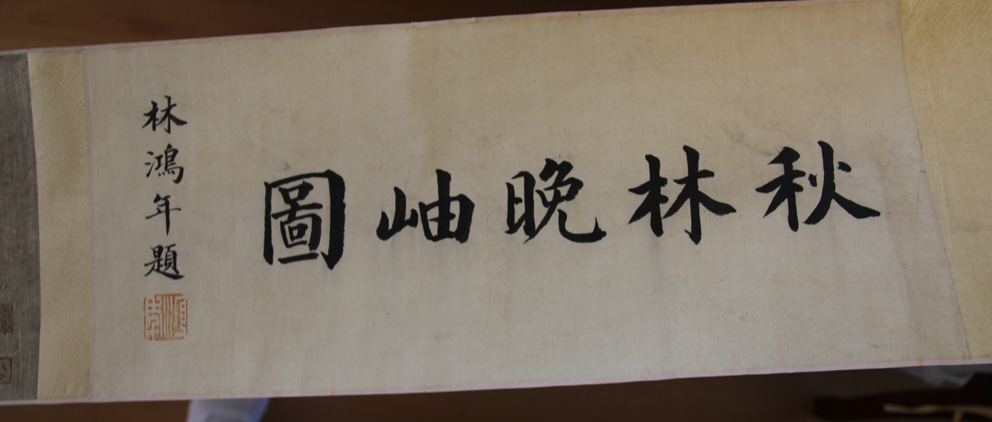 秋林晚岫圖
林鴻年題